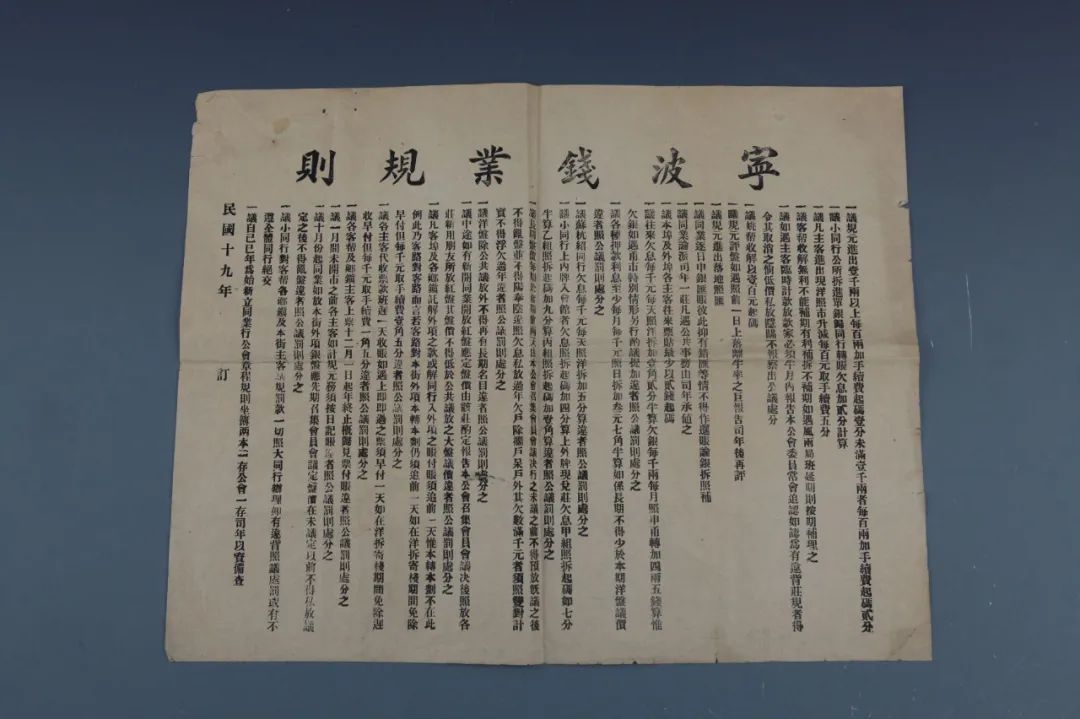 寧波錢業規則
一議規元進出壹千兩以上每百兩加手續費起碼壹分未滿壹千兩者每百兩加手續費起碼貳分
一議小同行公所拆進單銀歸同行轉賬欠息加貳分計算
一議凡主客進出現洋照市升減每百元取手續費五分
一議客幫收解無利不能補期有利補拆不補期如遇風雨局班延期則按期補理之
一議如遇主客臨時計款放款家必須午月內報告本公會委員常會追認如認為有違背莊規者得
令其取消之倘低價私放隱瞞不報察出公議處分
一議統幫收解以壹百元起碼
一議規元評盤如遇照前一日上落離半半之巨報告司年後再評
一議規元進出落地照匯
一議同業逐日申銀匯賬彼此抑有錯匯等情不得作還賬論銀拆照補
一議同業輪派司年一莊凡遇公共事務由司年承值之
一議本埠及外埠各主客往來票貼最少以貳錢起碼
一議往來欠息每千元每天照洋拆加壹角貳分半算欠銀每千兩每月照申甬轉加四兩五錢算惟
欠銀如遇甬市特別情形另行酌議攙加違者照公議罰則處分之
一議各種押款利息至少每月每千元照日拆加叁元七角半算如係長期不得少於本期洋盤議價
違者照公議罰則處分之
一議蘇杭紹同行欠息每千元每天照洋拆加五分算違者照公議罰則處分之
一議小同行上內牌入會館者欠息照拆起碼加四分算上外牌現兌莊欠息甲組照拆起碼加七分
半算乙組照拆起碼加九分算丙組照拆起碼加壹角算違者照公議罰則處分之
不得亂盤並不得陽奉陰違照欠息私放過年欠戶除攤戶呆戶外其欠數滿千元者須照雙對計
實不得浮欠過年違者照公議罰則處分之
一議洋盤除公共議放外不得再有長期名目違者照公議罰則處分之
一議中途如有新開同業開放紅盤應定盤價由該莊酌定報告本公會召集會員會議決後照放各
莊暫用朋友所放紅盤其盤價不得低於公共議放之大盤議價違者照公議罰則處分之
一議凡客埠及各鄉鎮託解外項之款或解同行入外項之賬付賬須追前二天惟本轉本劃不在此
例此乃客路對客路而言若客路對本街外項本轉本劃仍須追前一天如在洋拆寄棧期間免除
早付但每千元取手續費壹角五分違者照公議罰則處分之
一議各主客代收票款班遲一天收賬如遇上即即過之票須早付一天如在洋拆寄棧期間免除遲
收早付但每千元取手續費一角五分違者照公議罰則處分之
一議各客幫及鄉鎮主客上票十二月一日起年終止概歸見票付賬違者照公議罰則處分之
一議一月間未開市之前各主客如計規元務須按日記賬違者照公議罰則處分之
一議十月份起同業如放本街外項銀盤應先期召集會員會議定盤價在未議定以前不得私放議
定之後不得亂盤違者照公議罰則處分之
一議小同行對客幫各鄉鎮及本街主客議規罰款一切照大同行辦理如有違背照議處罰或有不
遵全體同行絕交
一議自己巳年為始新立同業行公會章程規則坐簿兩本一存公會一存司年以壹備查
民國十九年 訂